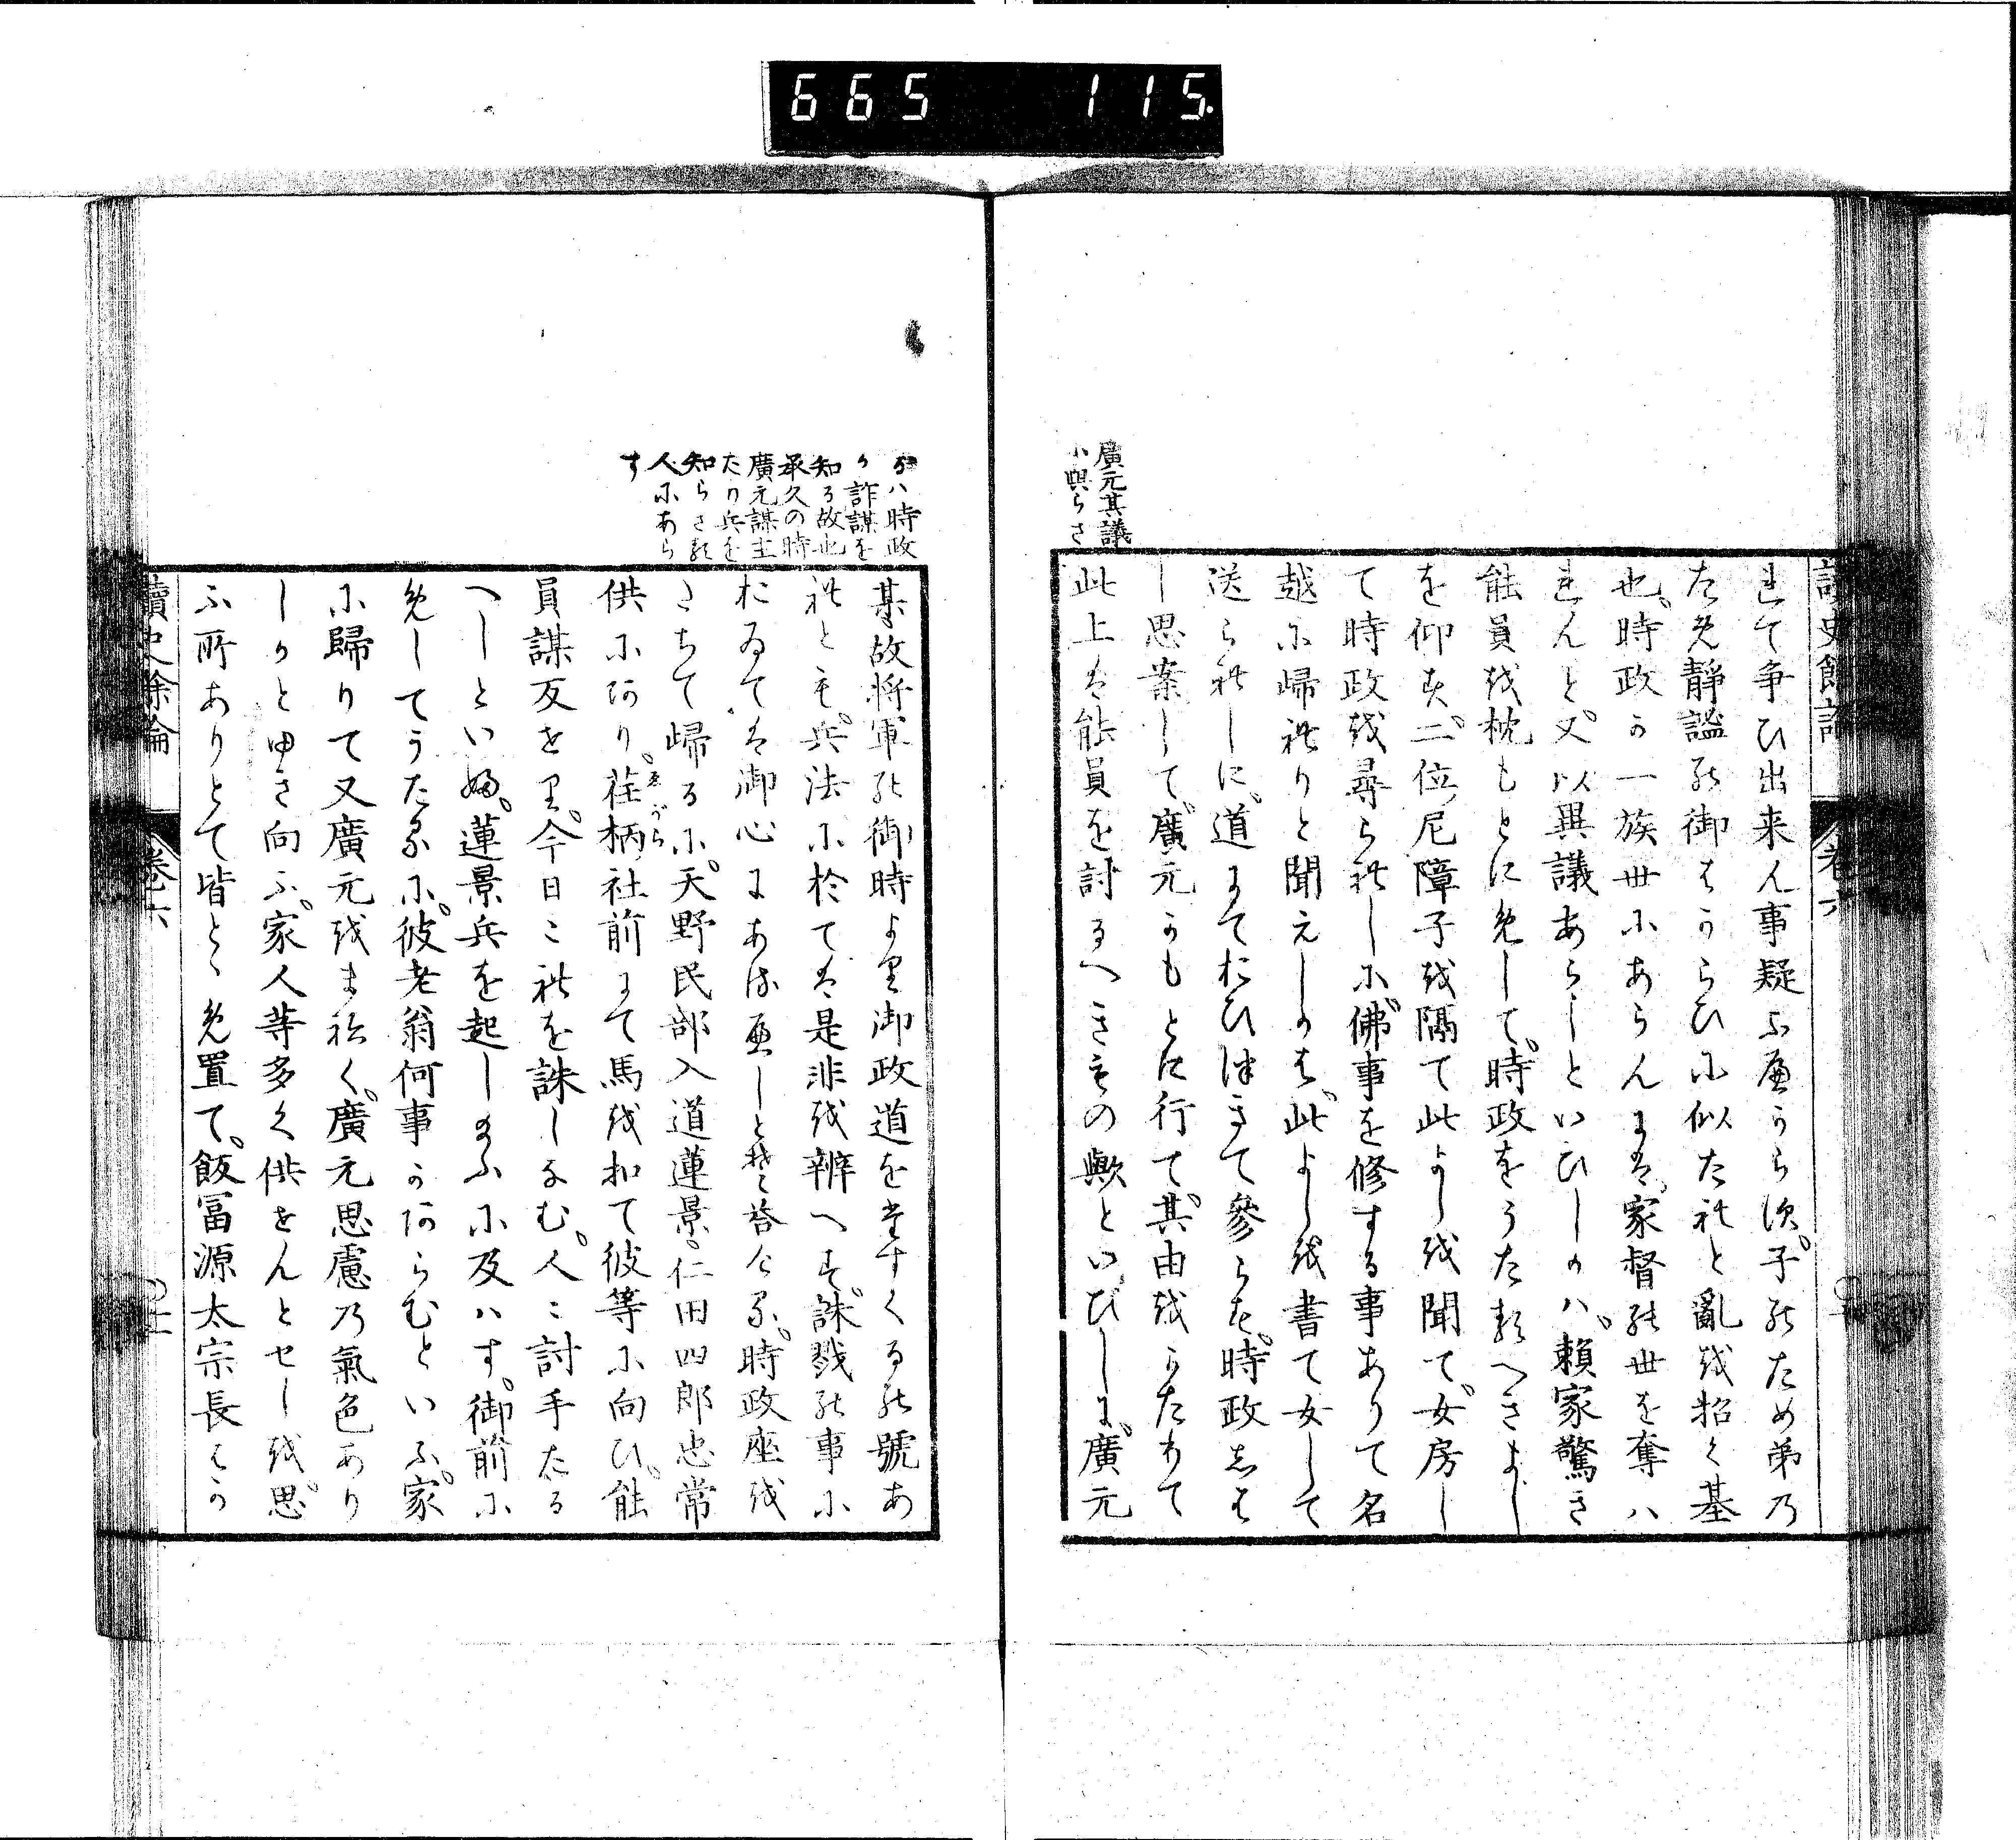 665 115
讀史餘論 卷六
廣元其議
小與らさ
れて争ひ出来ん事疑ふ所からす子のため弟乃
ため靜謐の御はからひに似たれと亂を招く基
也時政か一族世にあらんには家督の世を奪ハ
れんと又以異議あらしといひしかハ頼家驚き
能員を枕もとにめして時政をうたるへきよし
を仰す二位尼障子を隔て此よしを聞て女房し
て時政を尋られしに佛事を修する事ありて名
越に歸れりと聞えしかは此よしを書て女して
送られしに道にておひつきて參らす時政しは
し思案して廣元かもとに行て其由をかたりて
此上は能員を討るへきもの歟といひしに廣元
るハ時政
か詐謀を
知る故也
承久の時
廣元謀主
たり兵を
知らさる
人にあら
す
某故将軍の御時より御政道をたすくるの號あ
れとも兵法に於ては是非を辨へす誅戮の事に
おゐては御心にあるへしとそ答へける時政座を
たちて歸るに天野民部入道蓮景仁田四郎忠常
供にあり荏柄社前にて馬を扣て彼等に向ひ能
えがら
員謀反せり今日これを誅しなむ人々討手たる
へしといふ蓮景兵を起し給ふに及ハす御前に
めしてうたるに彼老翁何事かあらむといふ家
に歸りて又廣元をまねく廣元思慮乃氣色あり
しかとゆき向ふ家人等多く供せんとセしを思
ふ所ありとて皆とゝめ置て飯冨源太宗長はか
讀史餘論 卷六